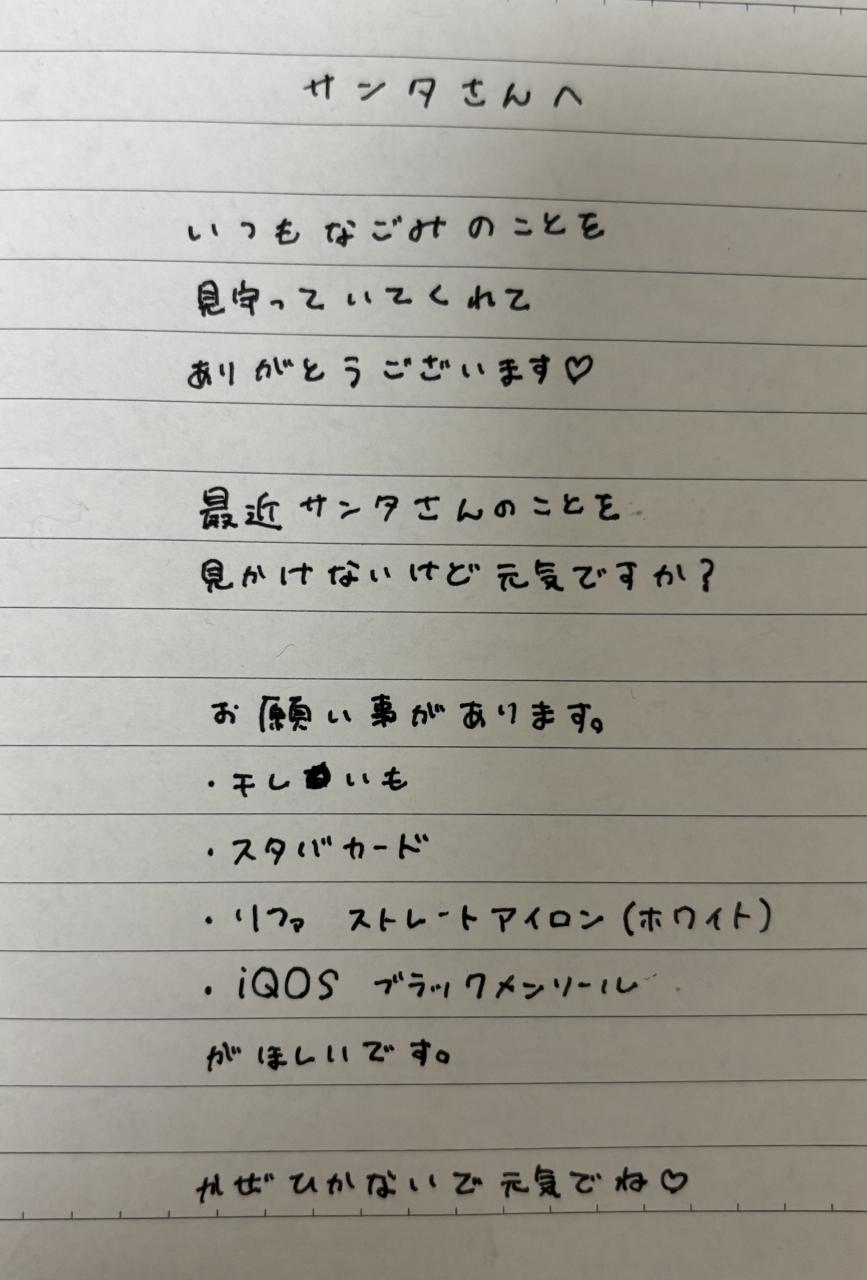 サンタさんへ
いつもなごみのことを
見守っていてくれて
ありがとうございます♡
最近サンタさんのことを
見かけないけど元気ですか?
お願い事があります。
・干しいも
・スタバカード
・リファ ストレートアイロン(ホワイト)
・iQOS ブラックメンソール
がほしいです。
かぜひかないで元気でね♡